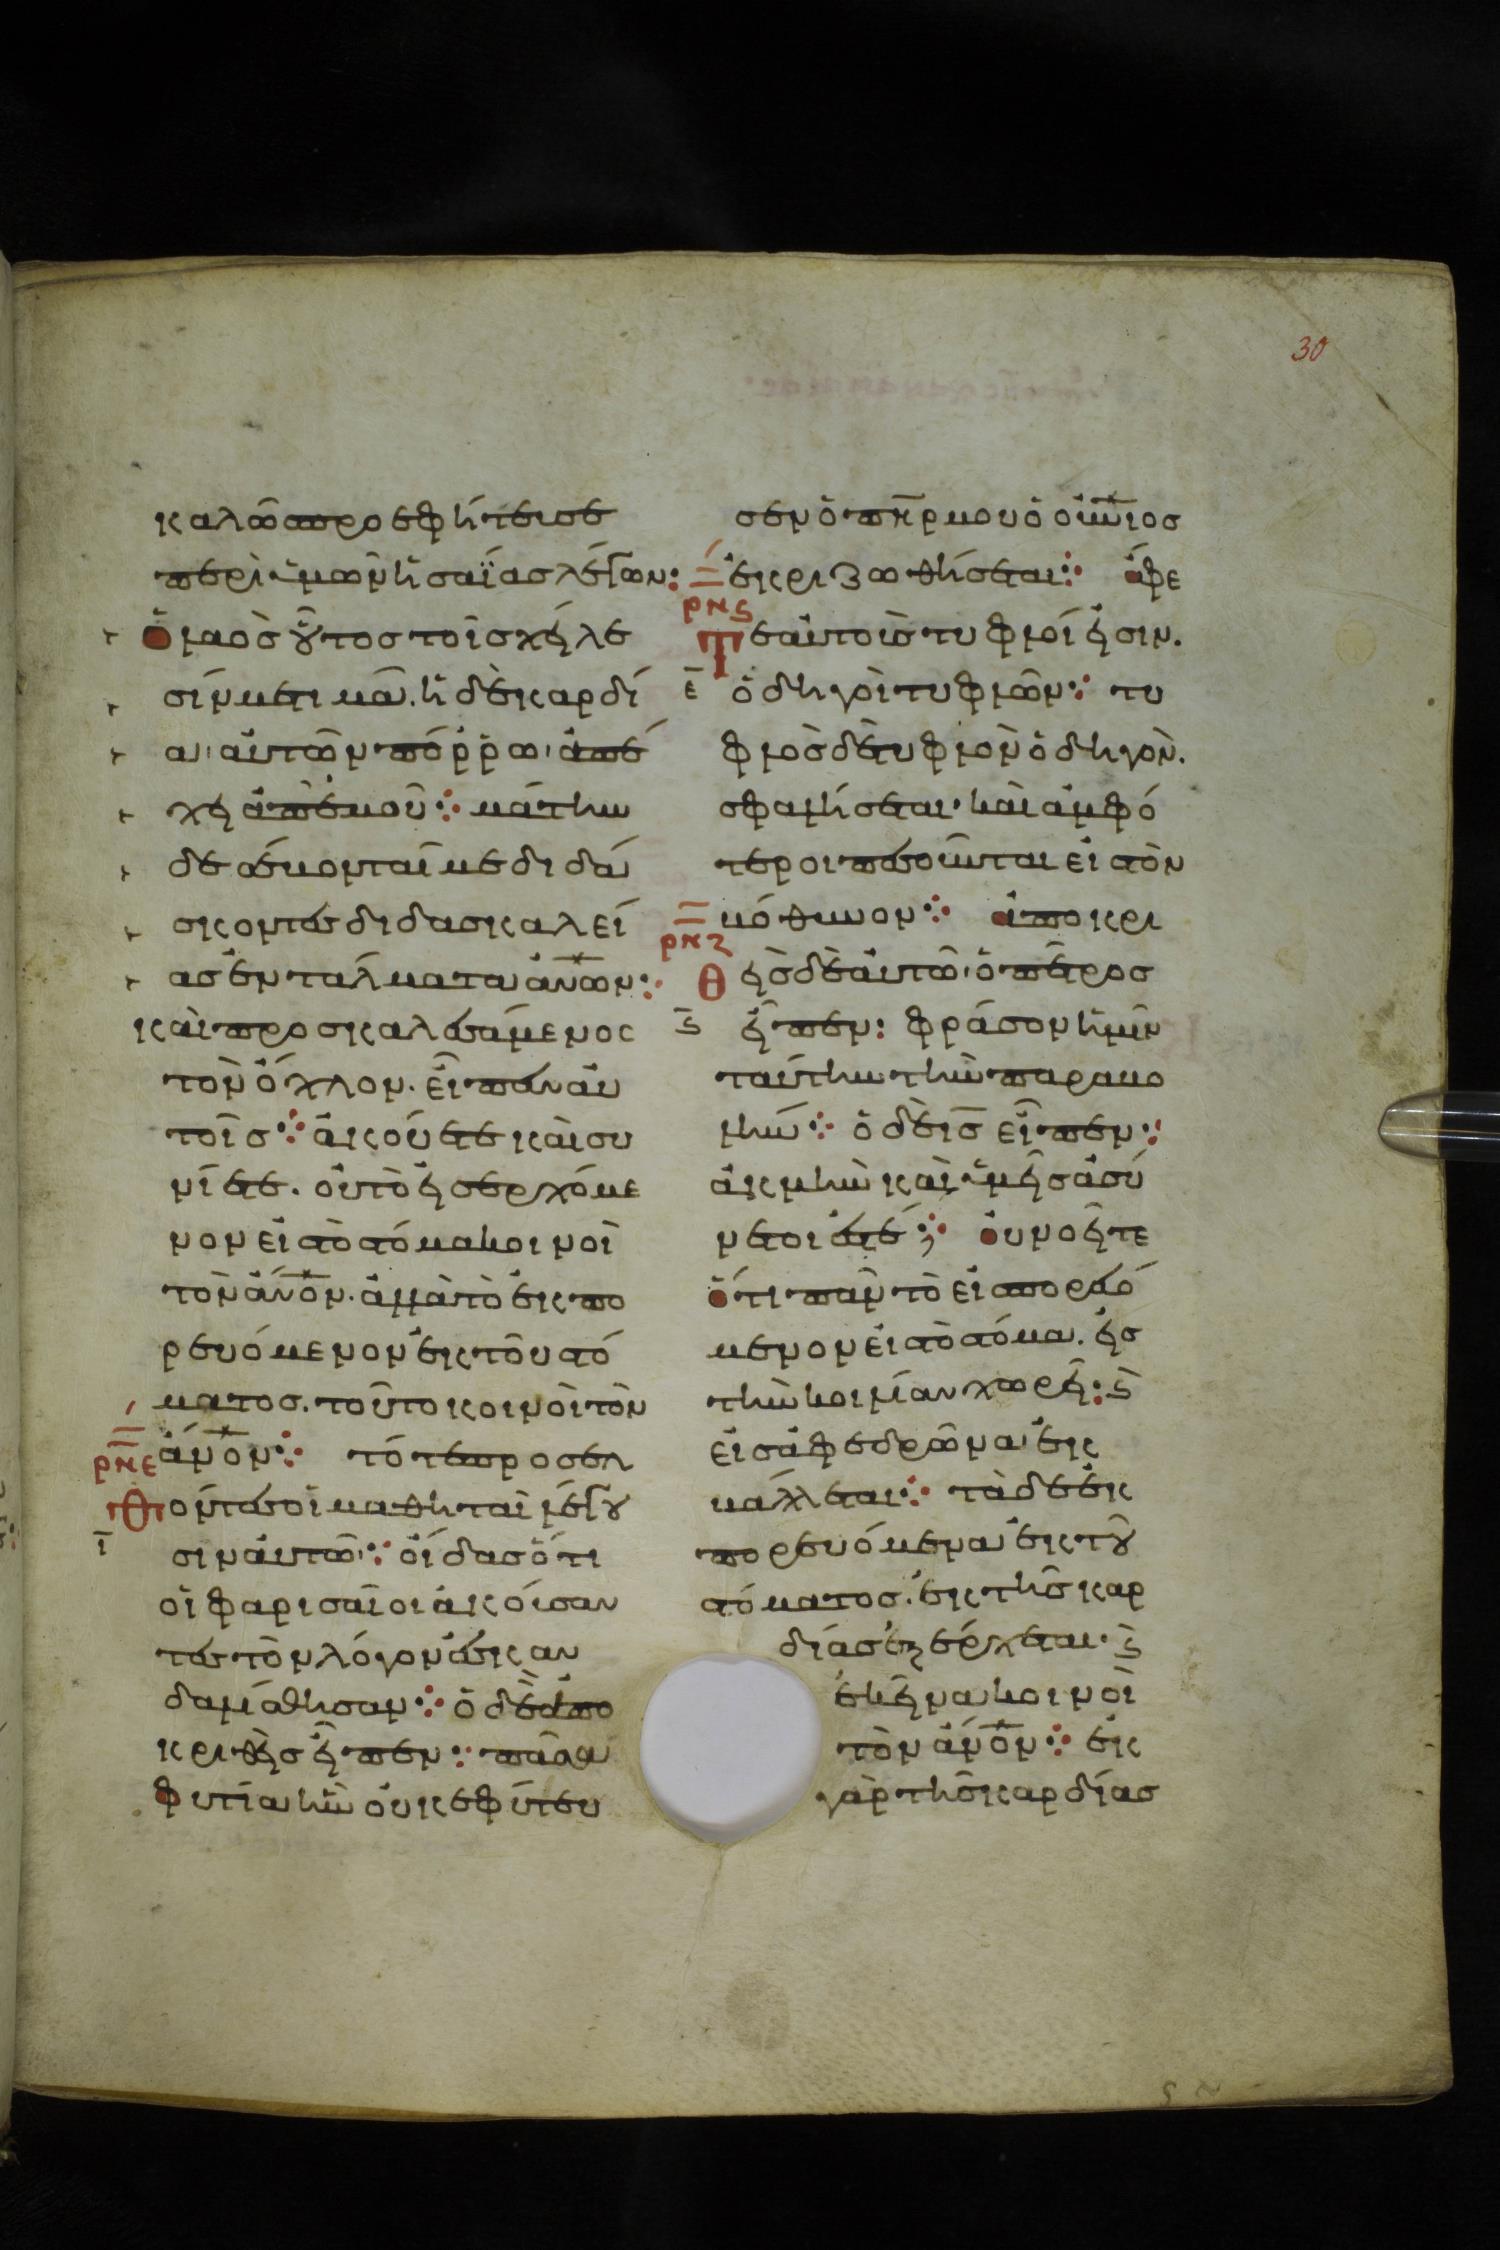 καλῶσ προεφήτευσε
περὶ ὑμῶν ἡσαΐασ λέγων:
ὁ λαὸσ οὗτοσ τοῖσ χείλε
σίν με τιμᾶ. ἡ δὲ καρδί
α αὐτῶν πόρρω ἀπέ
χει ἀπ' ἐμοῦ: μάτην
δὲ σέβονταί με διδά
σκοντεσ διδασκαλεί
ασ ἐντάλματα ἀν̅ων:
καὶ προσκαλεσάμενος
τὸν ὄχλον. εἶπεν αὐ
τοῖσ: ἀκούετε καὶ συ
νίετε. οὐ τὸ εἰσερχόμε
νον εἰσ τὸ στόμα κοινοῖ
τὸν ἄν̅ον. ἀλλὰ τὸ ἐκπο
ρευόμενον ἐκ τοῦ στό
ματοσ. τοῦτο κοινοῖ τὸν
ρνε ἄν̅ον: τότε προσελ
θόντεσ οἱ μαθηταὶ λέγου
ι̅ σιν αὐτῶ: οἶδασ ὅτι
οἱ φαρισαῖοι ἀκούσαν
τεσ τὸν λόγον ἐσκαν
δαλίσθησαν: ὁ δὲ ἀπο
κριθεὶσ εἶπεν: πᾶσα
φυτία ἣν οὐκ ἐφύτευ
30
σεν ὁ π̅η̅ρ μου ὁ οὐν̅ιοσ
ρνς ἐκριζωθήσεται: ἄφε
τε αὐτοὺσ τυφλοί εἰσιν.
ε̅ ὁδηγοὶ τυφλῶν: τυ
φλὸσ δὲ τυφλὸν ὁδηγῶν.
σφαλήσεται. καὶ ἀμφό
τεροι πεσοῦνται εἰσ τὸν
ρνζ βόθυνον: ἀποκρι
θεὶσ δὲ αὐτῶ. ὁ πέτροσ
ς̅ εἶπεν: φράσον ἡμῖν
ταύτην τὴν παραβο
λήν: ὁ δὲ ι̅σ̅ εἶπεν:
ἀκμὴν καὶ ὑμεῖσ ἀσύ
νετοι ἐστέ; οὐ νοεῖτε
ὅτι πᾶν τὸ εἰσπορευό
μενον εἰσ τὸ στόμα. εἰσ
τὴν κοιλίαν χωρεῖ: ϛ̀
εἰσ ἀφεδρῶνα ἐκ
βάλλεται: τὰ δὲ ἐκ
πορευόμενα ἐκ τοῦ
στόματοσ. ἐκ τῆσ καρ
δίασ ἐξέρχεται. ϛ̀
ἐκεῖνα κοινοῖ
τὸν ἄν̅ον: ἐκ
γὰρ τῆσ καρδίασ